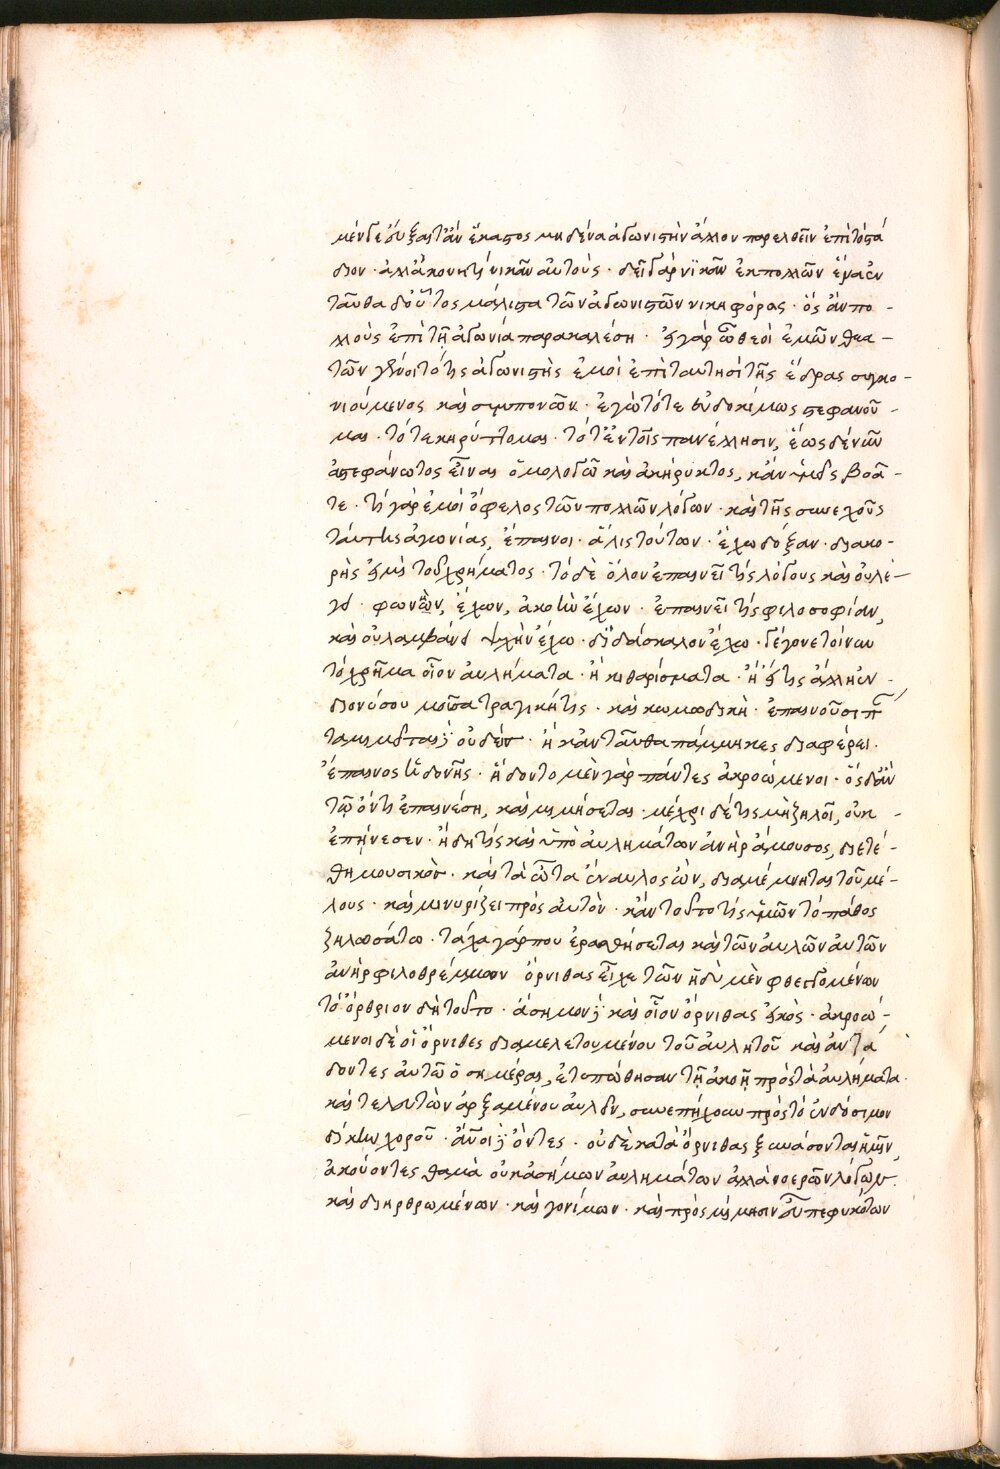 μὲν δὲ εὔξαιτ' ἂν ἕκαστος μηδένα ἀγωνιστὴν ἄλλον παρελθεῖν ἐπὶ τὸ στά
διον · ἀλλ' ἀκονιτὶ νικᾶν αὐτούς · δεῖ γὰρ νικᾶν ἐκ πολλῶν ἕνα ἐν
ταῦθα δ' οὗτος μάλιστα τῶν ἀγωνιστῶν νικηφόρος · ὃς ἂν πο -
λλοὺς ἐπὶ τῇ ἀγωνίᾳ παρακαλέσῃ · εἰ γὰρ ὦ θεοὶ ἐμῶν θεα -
τῶν γένοιτό τις ἀγωνιστὴς ἐμοὶ ἐπὶ ταυτησὶ τῆς ἕδρας συγκο -
νιούμενος καὶ συμπονῶν · ἐγὼ τότε εὐδοκίμως στεφανοῦ -
μαι · τότε κηρύττομαι · τότ' ἐν τοῖς πανέλλησιν, ἕως δὲ νῦν
ἀστεφάνωτος εἶναι ὁμολογῶ καὶ ἀκήρυκτος, κἂν ὑμεῖς βοᾶ -
τε · τί γὰρ ἐμοὶ ὄφελος τῶν πολλῶν λόγων · καὶ τῆς συνεχοῦς
ταύτης ἀγωνίας, ἔπαινοι · ἅλις τούτων · ἔχω δόξαν · διακο -
ρής εἰμι τοῦ χρήματος · τὸ δὲ ὅλον ἐπαινεῖ τις λόγους καὶ οὐ λέ -
γει · φωνὴν ἔχων, ἀκοὴν ἔχων · ἐπαινεῖ τις φιλοσοφίαν,
καὶ οὐ λαμβάνει ψυχὴν ἔχων · διδάσκαλον ἔχων · γέγονε τοίνυν
τὸ χρῆμα οἷον αὐλήματα · ἢ κιθαρίσματα · ἢ εἴ τις ἄλλη ἐν -
διονύσου μοῦσα τραγική τις · καὶ κωμῳδική · ἐπαινοῦσι
μιμεῖται οὐδείς · ἢ κἀνταῦθα πάμμηκες διαφέρει ·
ἔπαινος ἡδονῆς · ἥδοντο μὲν γὰρ πάντες ἀκροώμενοι · ὃς δ' ἂν
τῷ ὄντι ἐπαινέσῃ, καὶ μιμήσεται · μέχρι δέ τις μὴ ζηλοῖ, οὐκ -
ἐπῄνεσεν · ἤδη τις καὶ ὑπὸ αὐλημάτων ἀνὴρ ἄμουσος, διετέ -
θη μουσικῶς · καὶ τὰ ὦτα ἔναυλος ὢν, διαμέμνηται τοῦ μέ -
λους · καὶ μινυρίζει πρὸς αὐτόν · κἂν τοῦτο τις ὑμῶν τὸ πάθος
ζηλωσάτω · τάχα γάρ που ἐρασθήσεται καὶ τῶν αὐλῶν αὐτῶν
ἀνὴρ φιλοθρέμμων ὄρνιθας εἶχε τῶν ἡδὺ μὲν φθεγγομένων
τὸ ὄρθριον δὴ τοῦτο · ἄσημον καὶ οἷον ὄρνιθας εἰκὸς · ἀκροώ -
μενοι δὲ οἱ ὄρνιθες διαμελετουμένου τοῦ αὐλητοῦ καὶ ἀντᾴ
δοντες αὐτῷ ὁσημέραι, ἐτυπώθησαν τῇ ἀκοῇ πρὸς τὰ αὐλήματα ·
καὶ τελευτῶν ἀρξαμένου αὐλεῖν, συνεπήχουν πρὸς τὸ ἐνδόσιμον
δίκην χοροῦ · ὄντες · οὐδὲ κατὰ ὄρνιθας ξυνᾴσονται ἡμῖν,
ἀκούοντες θαμὰ οὐκ ἀσήμων αὐλημάτων ἀλλὰ νοερῶν λόγων ·
καὶ διηρθρωμένων · καὶ γονίμων · καὶ πρὸς μίμησιν εὖ πεφυκότων